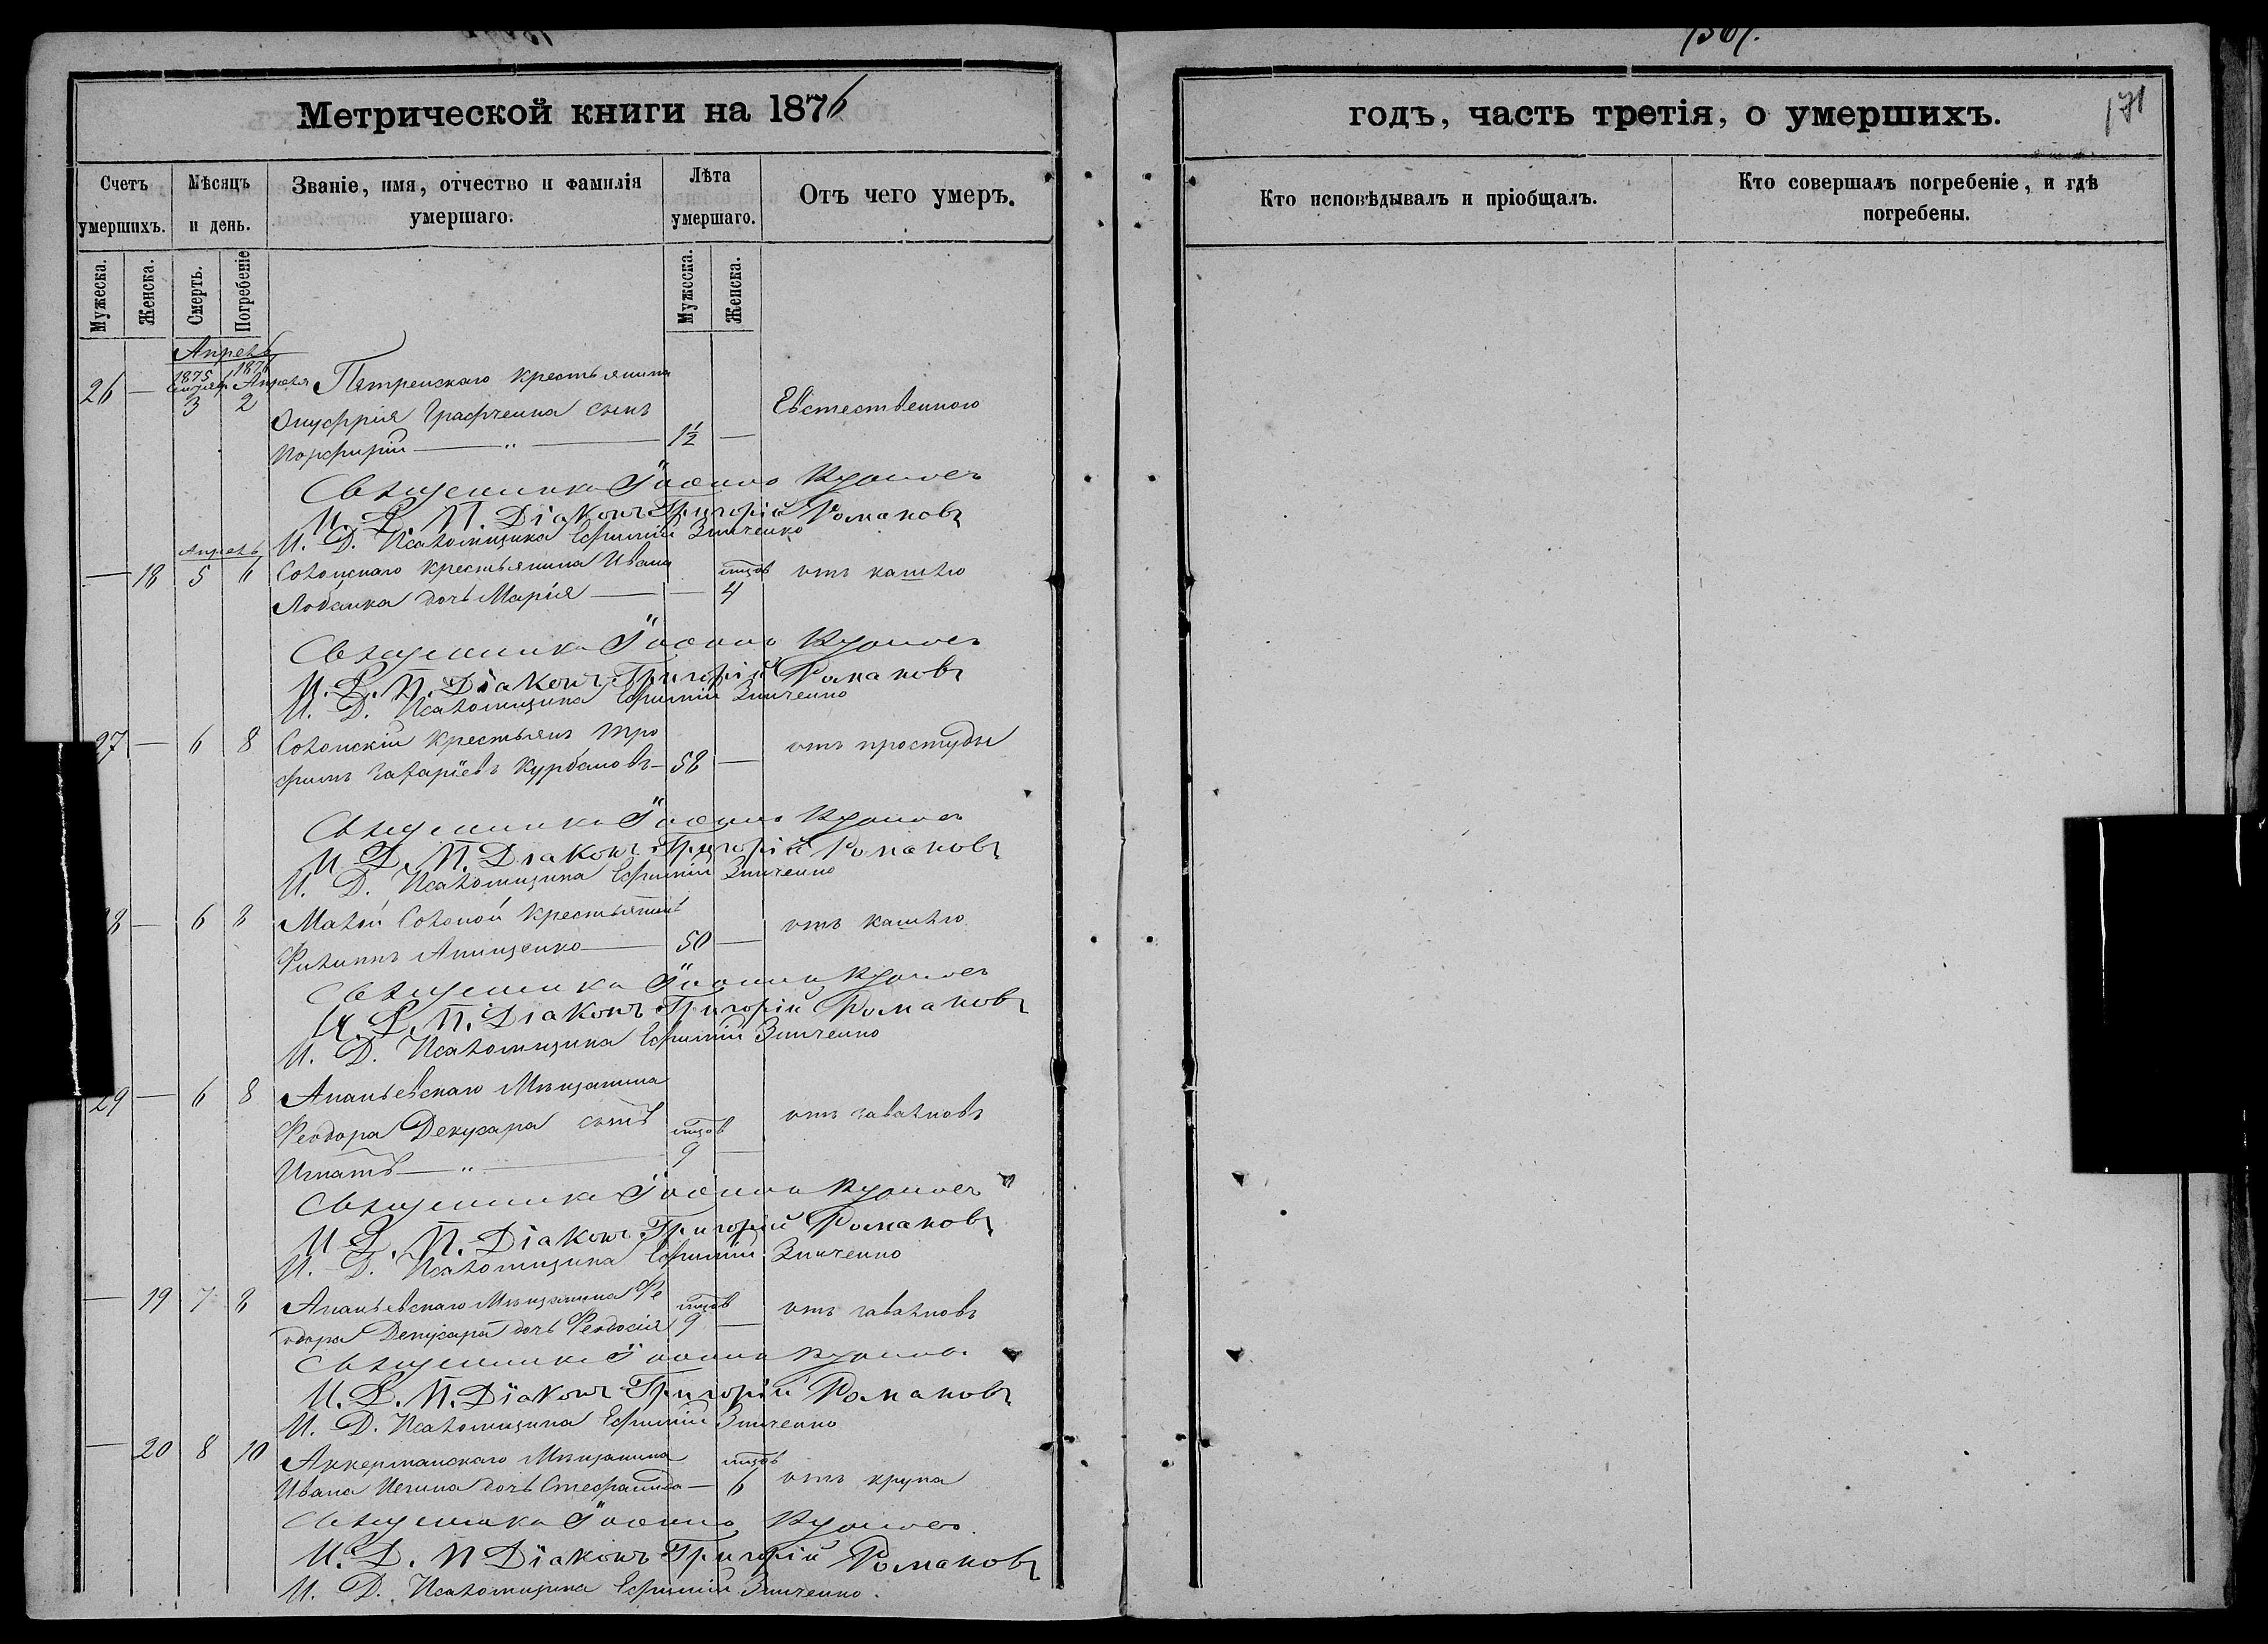 1361.
Метрической книги на 1876
годъ, часть третія, о умершихъ.
171
Счетъ умершихъ.
Мѣсяцъ и день.
Званіе, имя, отчество и фамилія умершаго.
Лѣта умершаго.
Отъ чего умеръ.
Кто исповѣдывалъ и пріобщалъ.
Кто совершалъ погребеніе, и гдѣ погребены.
Мужеска.
Женска.
Смерть.
Погребеніе
Мужеска.
Женска.
Апрель
1875 1876
Апреля
26 — 3 2 крестьянина
Онуфрія Графченка сынъ Евстественного
Порфирій — „ — 1½ —
Священникъ Іоаннъ
И. Д. П. Діаконъ Григорій Романовъ
И. Д. Псаломщика Ефимій Зинченко
Апрель
— 18 5 6 крестьянина Ивана мцов отъ кашлю
Лобанка дочь Марія — — 4
Священникъ Іоаннъ
И. Д. П. Діаконъ Григорій Романовъ
И. Д. Псаломщика Ефимій Зинченко
27 — 6 8 крестьянъ Тро отъ простуды
фимъ Курбановъ — 58 —
Священникъ Іоаннъ
И. Д. П. Діаконъ Григорій Романовъ
И. Д. Псаломщика Ефимій Зинченко
28 — 6 8 Малой Солоной крестьянинъ отъ кашлю
Филиппъ Анищенко — 50 —
Священникъ Іоаннъ
И. Д. П. Діаконъ Григорій Романовъ
И. Д. Псаломщика Ефимій Зинченко
29 — 6 8 Ананьевскаго Мѣщанина
Феодора Декусара сынъ мцов отъ
Игнатъ — „ — 9 —
Священникъ Іоаннъ
И. Д. П. Діаконъ Григорій Романовъ
И. Д. Псаломщика Ефимій Зинченко
— 19 7 8 Ананьевскаго Мѣщанина Фе мцов отъ
одора Декусара дочь Феодосія 9 —
Священникъ Іоаннъ
И. Д. П. Діаконъ Григорій Романовъ
И. Д. Псаломщика Ефимій Зинченко
— 20 8 10 Аккерманскаго Мѣщанина мцов
Ивана дочь Стефанида — 6 отъ крупа
Священника Іоаннъ
И. Д. П Діаконъ Григорій Романовъ
И. Д. Псаломщика Ефимій Зинченко.